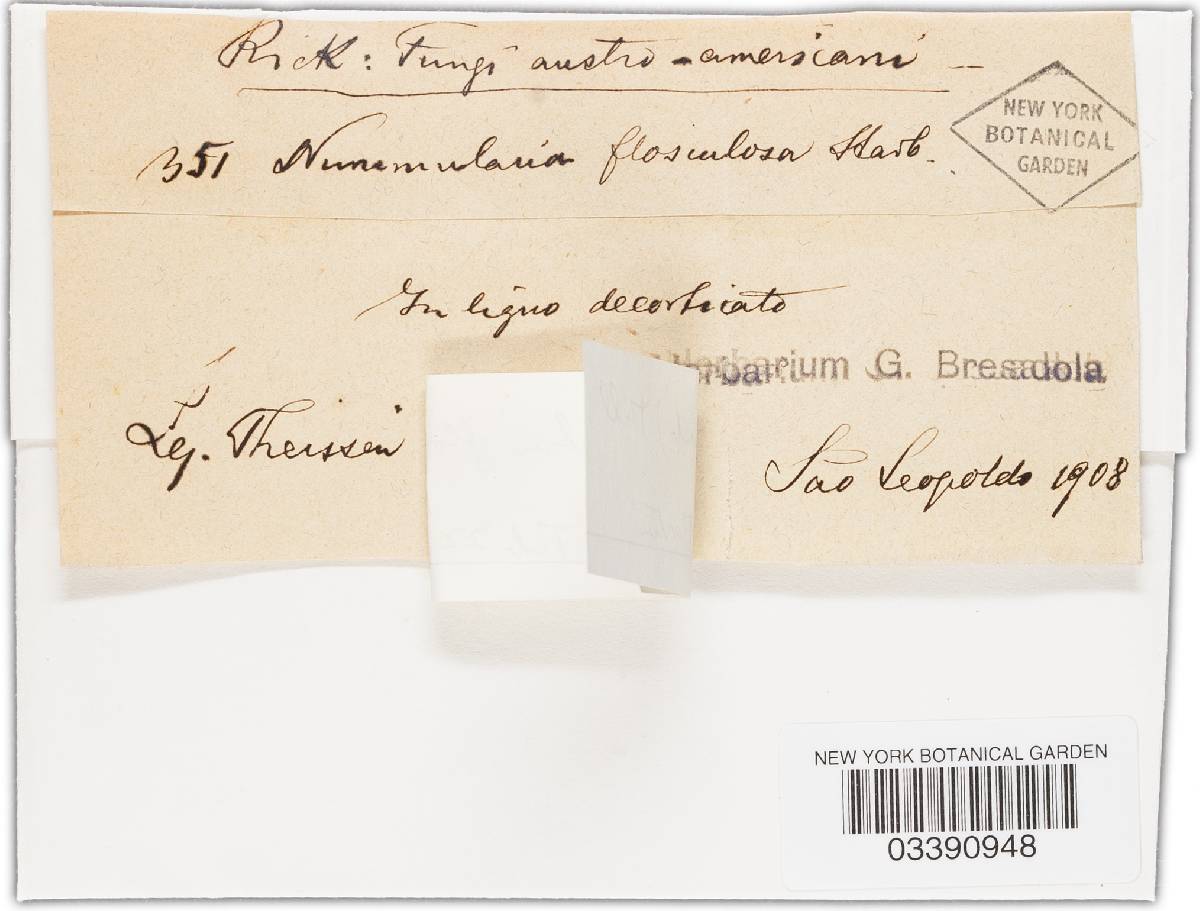 Rick: Fungi austro-americani —
NEW YORK
BOTANICAL
GARDEN
351 Nummularia flosculosa Starb.
In ligno decorticato
Herbarium G. Bresadola
Leg. Theissen
São Leopoldo 1908
NEW YORK BOTANICAL GARDEN
03390948